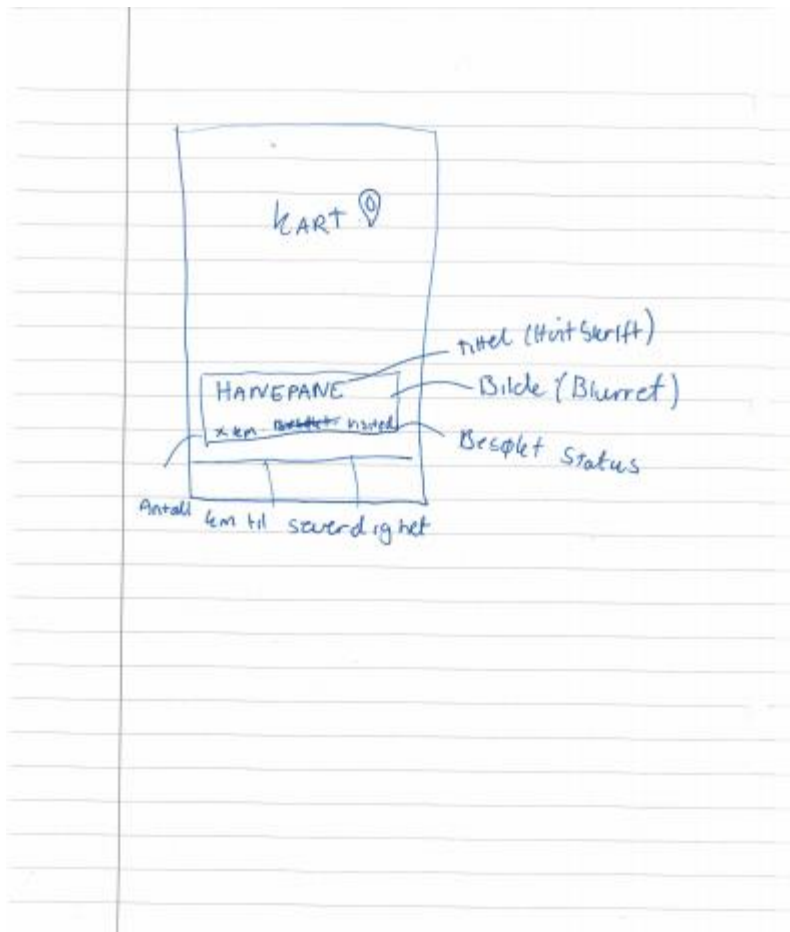 KART
Tittel (Hvit Skrift)
HANEPANE
Bilde (Blurret)
x km visited
Besøkt Status
Antall km til severdighet